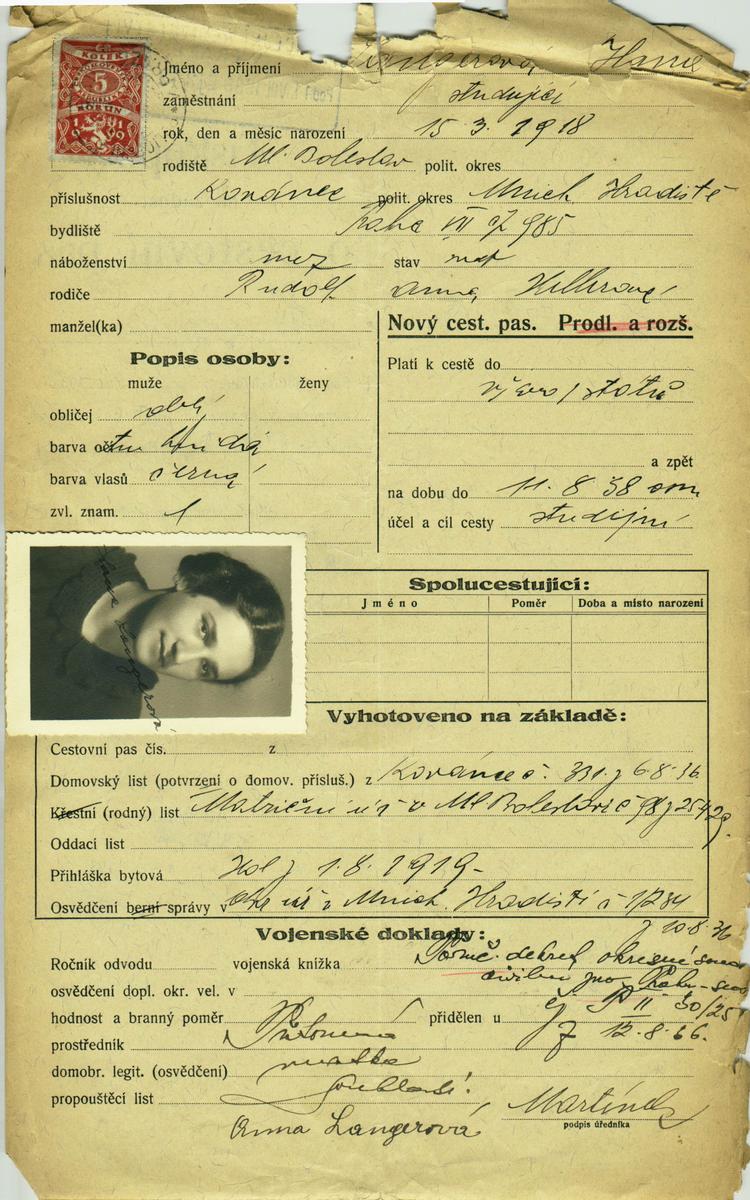 KOLEK
5
KORUN
Jméno a příjmení Langerová Hana
zaměstnání studující
rok, den a měsíc narození 15 3. 1918
rodiště Ml. Boleslav polit. okres
příslušnost Kovánec polit. okres Mnich Hradiště
bydliště Praha VII čj 985
náboženství moz stav
rodiče Rudolf Anna, Hellerová
manžel(ka)
Nový cest. pas. Prodl. a rozš.
Popis osoby:
muže ženy
obličej obl.
barva očí tm hnědá
barva vlasů černá
zvl. znam. /
Platí k cestě do
států
a zpět
na dobu do 11. 8 38
účel a cíl cesty studijní
Hana Langerová
Spolucestující:
Jméno Poměr Doba a místo narození
Vyhotoveno na základě:
Cestovní pas čís. z
Domovský list (potvrzení o domov. přísluš.) z Kovánce č. 331 z 6.8.36
Křestní (rodný) list Matriční úř v Ml. Boleslavi č
Oddací list
Přihláška bytová Hol z 1.8.1919-
Osvědčení berní správy v úř v Mnich. Hradišti č 1/284
z 10.8.36
Vojenské doklady:
Ročník odvodu vojenská knížka
dekret okresní soud
civilní pro Prahu-
osvědčení dopl. okr. vel. v
čj P II 30/25
hodnost a branný poměr Přítomná přidělen u
z 12.8.36.
prostředník
matka
domobr. legit. (osvědčení)
souhlasí.
propouštěcí list
Anna Langerová
podpis úředníka